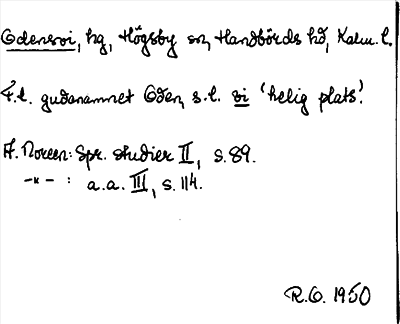 Odensvi, hg, Högsby sn, Handbörds hd, Kalm. l.
F.l. gudanamnet Oden, s.l. vi 'helig plats'.
A. Noreen: Spr. studier II, s. 89.
-"- : a.a. III, s. 114.
R.O. 1950